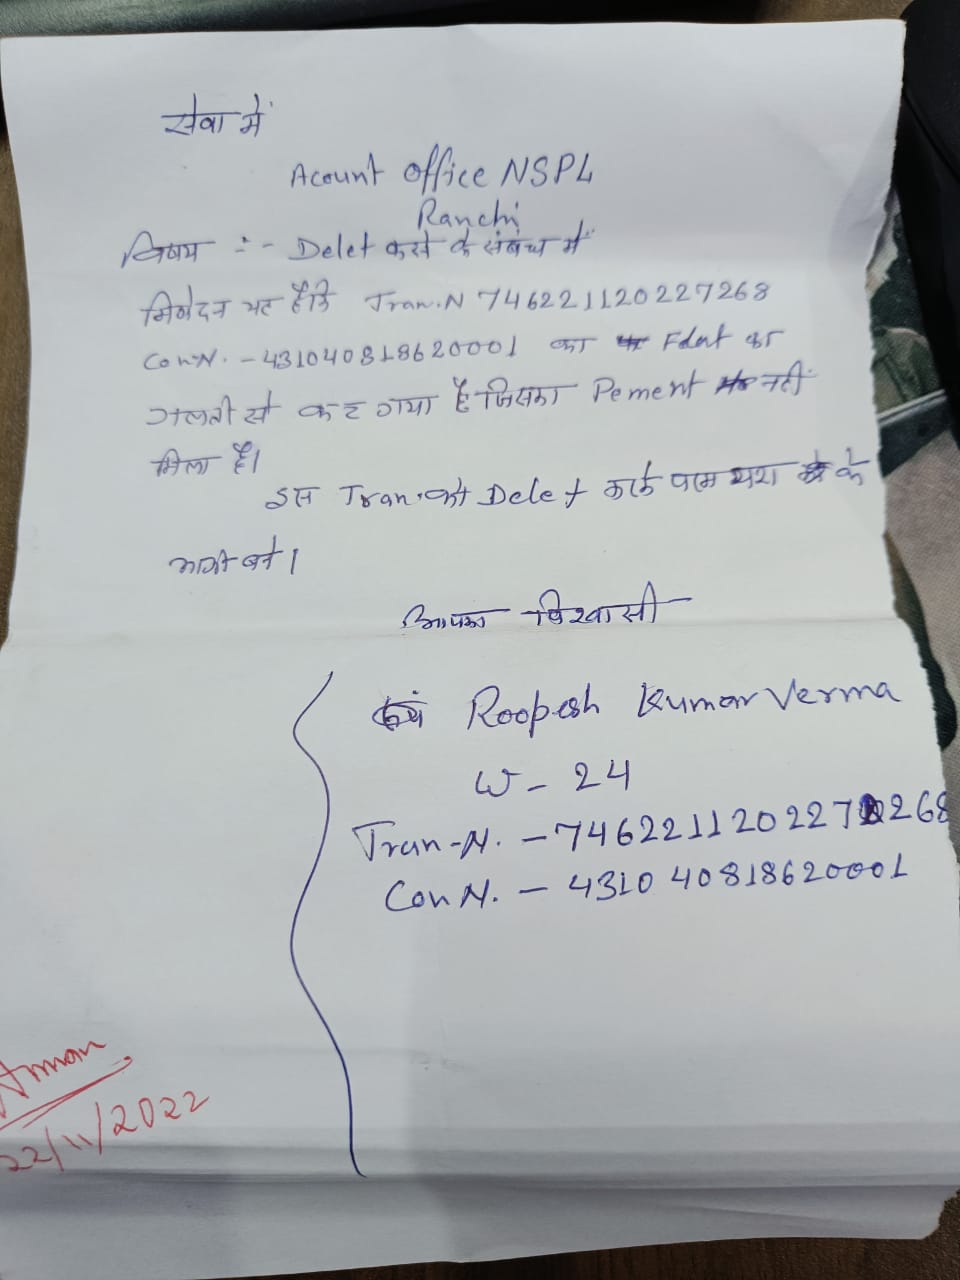 सेवा में
Acount Office NSPL
Ranchi
विषय :- Delet करने के संबंध में
निवेदन यह है कि Tran.N 746221120227268
Con.N. - 431040818620001 का Fdat कर
गलती से कट गया है जिसका Pement नहीं
मिला है।
इस Tran. को Delet करके परम यश के
भागी बने।
आपका विश्वासी
Roopesh Kumar Verma
W - 24
Tran-N. - 746221120227268
Con N. - 431040818620001
Arman
22/11/2022